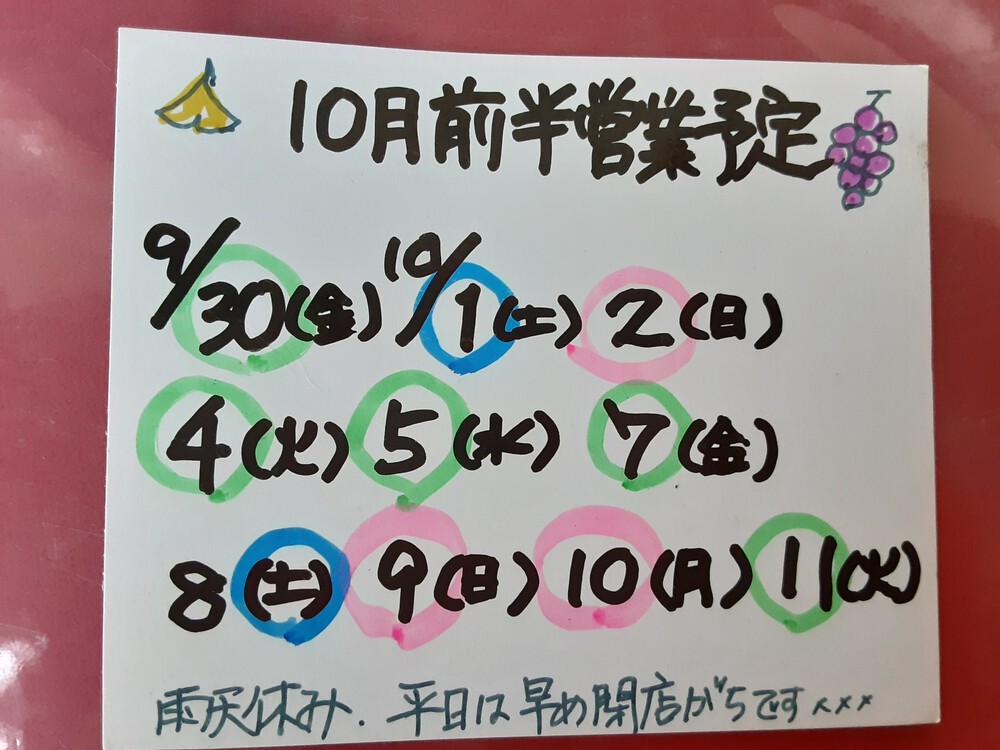 10月前半営業予定
9/30(金) 10/1(土) 2(日)
4(火) 5(水) 7(金)
8(土) 9(日) 10(月) 11(火)
雨天休み. 平日は早め閉店がちです×××